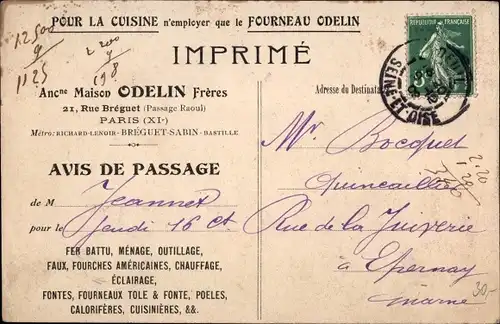 POUR LA CUISINE n'employer que le FOURNEAU ODELIN
IMPRIMÉ
12500
9
1125
2 200
9
198
Ancne Maison ODELIN Frères
21, Rue Bréguet (Passage Raoul)
PARIS (XI-)
Métro: RICHARD-LENOIR - BRÉGUET-SABIN - BASTILLE
AVIS DE PASSAGE
de M Jeannet
pour le Jeudi 16 ct
FER BATTU, MÉNAGE, OUTILLAGE,
FAUX, FOURCHES AMÉRICAINES, CHAUFFAGE,
ÉCLAIRAGE,
FONTES, FOURNEAUX TOLE & FONTE, POELES,
CALORIFÈRES, CUISINIÈRES, &&.
RÉPUBLIQUE FRANÇAISE
SEINE-ET-OISE
Adresse du Destinat
Mr. Bocquet
Quincaillier
Rue de la Juiverie
à Epernay
Marne
30.-